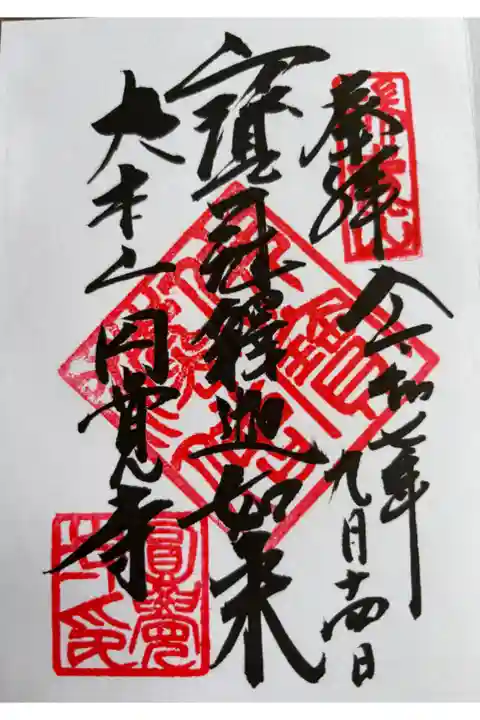 奉拝 令和七年九月十四日
寳冠釋迦如来
大本山円覚寺